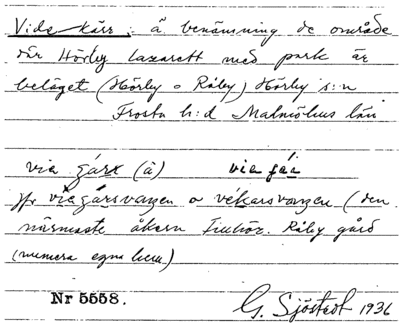 Vide kärr: ä benämning de område
där Hörby lasarett med park är
beläget (Hörby o Råby) Hörby s:n
Frosta h:d Malmöhus län
via gárs (ä) via gár
jfr viagársvagen o vékarsvagen (den
närmaste åkern Råby gård
(numera egna hem)
Nr 5558.
G. Sjöstedt 1936